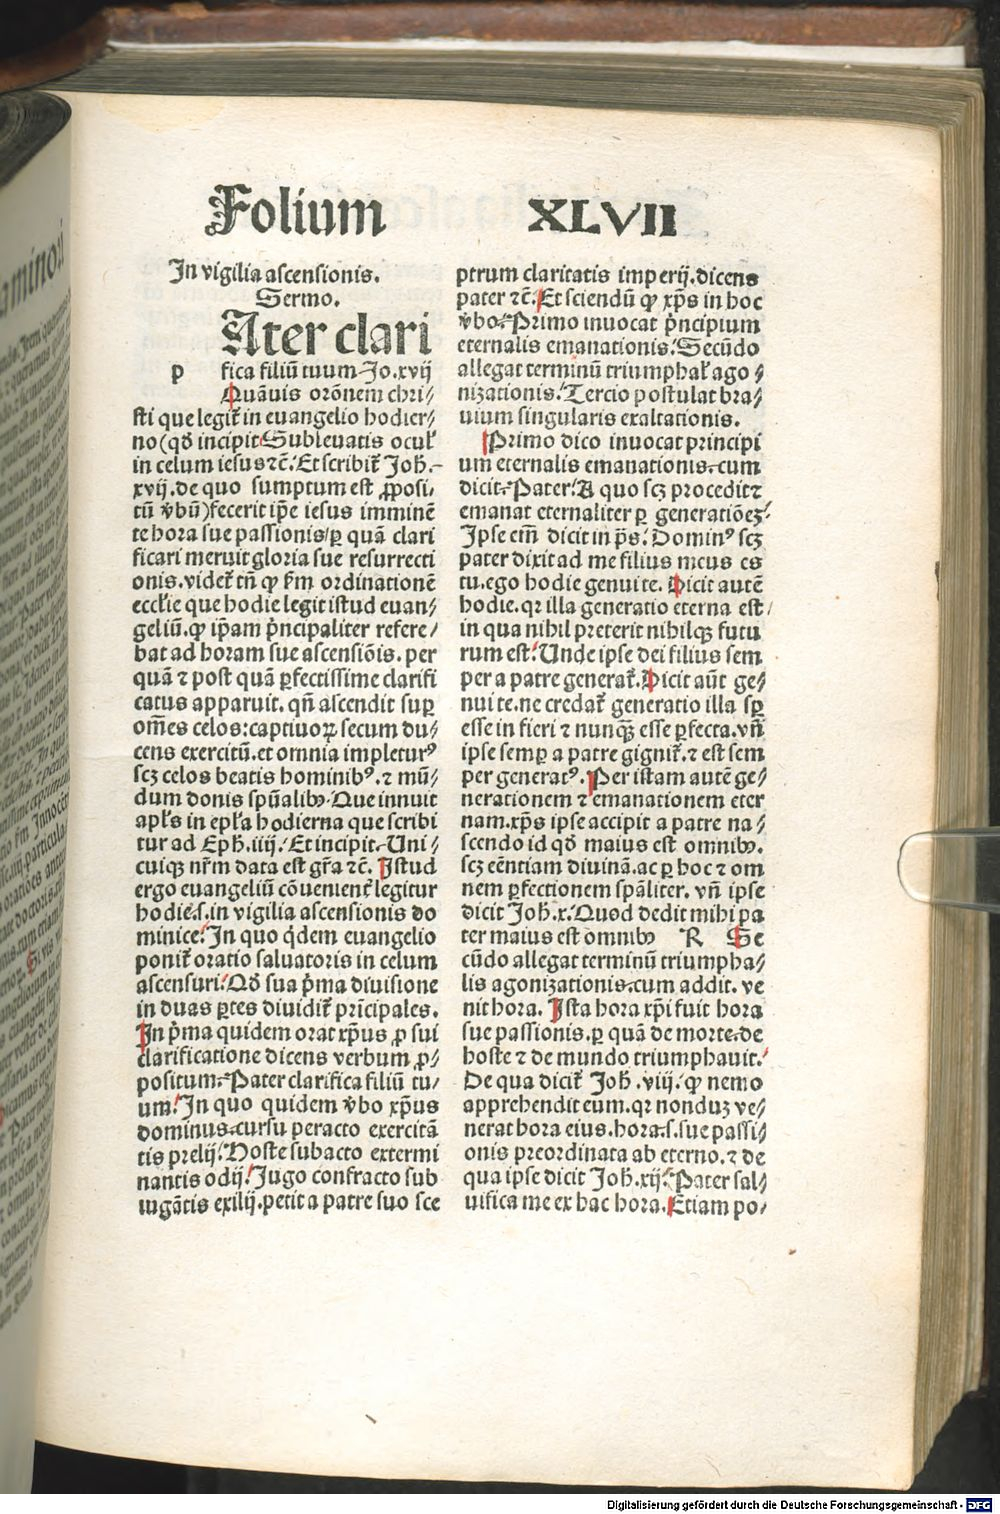 Folium XLVII
In vigilia ascensionis.
Sermo.
Ater clari
p fica filiū tuum. Jo. xvij
Quāuis orōnem chri⸗
sti que legit̄ in euangelio hodier⸗
no (qd̄ incipit Subleuatis ocul̄
in celum iesus ⁊c̄. Et scribit̄ Joh̄.
xvij. de quo sumptum est ꝓposi⸗
tū v̄bū) fecerit ip̄e iesus imminē
te hora sue passionis / ꝑ quā clari
ficari meruit gloria sue resurrecti
onis. videt̄ tn̄ ꝙ s̄m ordinationē
eccl̄ie que hodie legit istud euan⸗
geliū. ꝙ ip̄am p̄ncipaliter refere⸗
bat ad horam sue ascensiōis. per
quā ⁊ post quā ꝑfectissime clarifi
catus apparuit. qn̄ ascendit suꝑ
om̄es celos: captiuoꝝ secum du⸗
cens exercitū. et omnia impleturꝰ
scꝫ celos beatis hominibꝰ. ⁊ mū⸗
dum donis spūalibꝰ. Que innuit
apl̄s in epl̄a hodierna que scribi
tur ad Eph. iiij. Et incipit. Uni⸗
cuiqꝫ nr̄m data est gr̄a ⁊c̄. Istud
ergo euangeliū cōuenient̄ legitur
hodie .s. in vigilia ascensionis do
minice. In quo q̇dem euangelio
ponit̄ oratio saluatoris in celum
ascensuri. Qd̄ sua p̄ma diuisione
in duas ꝑtes diuidit̄ pr̄icipales.
In p̄ma quidem orat xp̄us ꝓ sui
clarificatione dicens verbum ꝓ⸗
positum. Pater clarifica filiū tu⸗
um. In quo quidem v̄bo xp̄us
dominus. cursu peracto exercitā
tis prelij. Hoste subacto extermi
nantis odij. Jugo confracto sub
iugātis exilij. petit a patre suo sce
ptrum claritatis imperij. dicens
pater ⁊c̄. Et sciendū ꝙ xp̄s in hoc
v̄bo. Primo inuocat p̄ncipium
eternalis emanationis. Secūdo
allegat terminū triumphal̄ ago⸗
nizationis. Tercio postulat bra⸗
uium singularis exaltationis.
Primo dico inuocat principi
um eternalis emanationis. cum
dicit. Pater. A quo scꝫ procedit ⁊
emanat eternaliter ꝑ generatiōeꝫ.
Ipse em̄ dicit in ps̄. Dominꝰ scꝫ
pater dixit ad me filius meus es
tu. ego hodie genui te. Dicit autē
hodie. qr illa generatio eterna est /
in qua nihil preterit nihilqꝫ futu
rum est. Unde ipse dei filius sem
per a patre generat̄. Dicit aūt ge⸗
nui te. ne credat̄ generatio illa sꝑ
esse in fieri ⁊ nunqꝫ̄ esse ꝑfecta. vn̄
ipse semꝑ a patre gignit̄. ⁊ est sem
per generatꝰ. Per istam autē ge⸗
nerationem ⁊ emanationem eter
nam. xp̄s ipse accipit a patre na⸗
scendo id qd̄ maius est omnibꝰ.
scꝫ eēntiam diuinā. ac ꝑ hoc ⁊ om
nem ꝑfectionem spāliter. vn̄ ipse
dicit Joh. x. Quod dedit mihi pa
ter maius est omnibꝰ R Se
cūdo allegat terminū triumpha⸗
lis agonizationis. cum addit. ve
nit hora. Ista hora xp̄i fuit hora
sue passionis. ꝑ quā de morte. de
hoste ⁊ de mundo triumphauit.
De qua dicit̄ Joh̄. viij. ꝙ nemo
apprehendit eum. qr nonduꝫ ve⸗
nerat hora eius. hora .s. sue passi⸗
onis preordinata ab eterno. ⁊ de
qua ipse dicit Joh̄. xij. Pater sal⸗
uifica me ex hac hora. Etiam po⸗
Digitalisierung gefördert durch die Deutsche Forschungsgemeinschaft - DFG